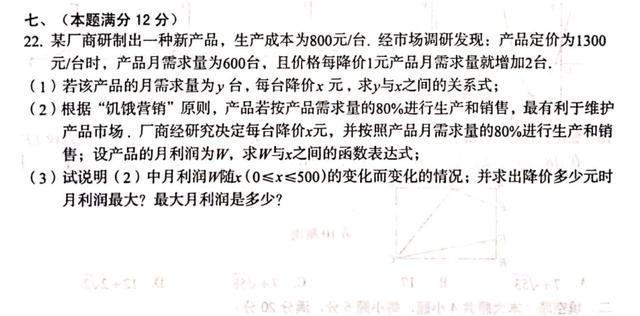 七、（本题满分 12 分）
22. 某厂商研制出一种新产品，生产成本为800元/台. 经市场调研发现：产品定价为1300
元/台时，产品月需求量为600台，且价格每降价1元产品月需求量就增加2台.
（1）若该产品的月需求量为y 台，每台降价x 元，求y与x之间的关系式；
（2）根据“饥饿营销”原则，产品若按产品需求量的80%进行生产和销售，最有利于维护
产品市场．厂商经研究决定每台降价x元，并按照产品月需求量的80%进行生产和销
售；设产品的月利润为W，求W与x之间的函数表达式；
（3）试说明（2）中月利润W随x（0≤x≤500)的变化而变化的情况；并求出降价多少元时
月利润最大？最大月利润是多少？